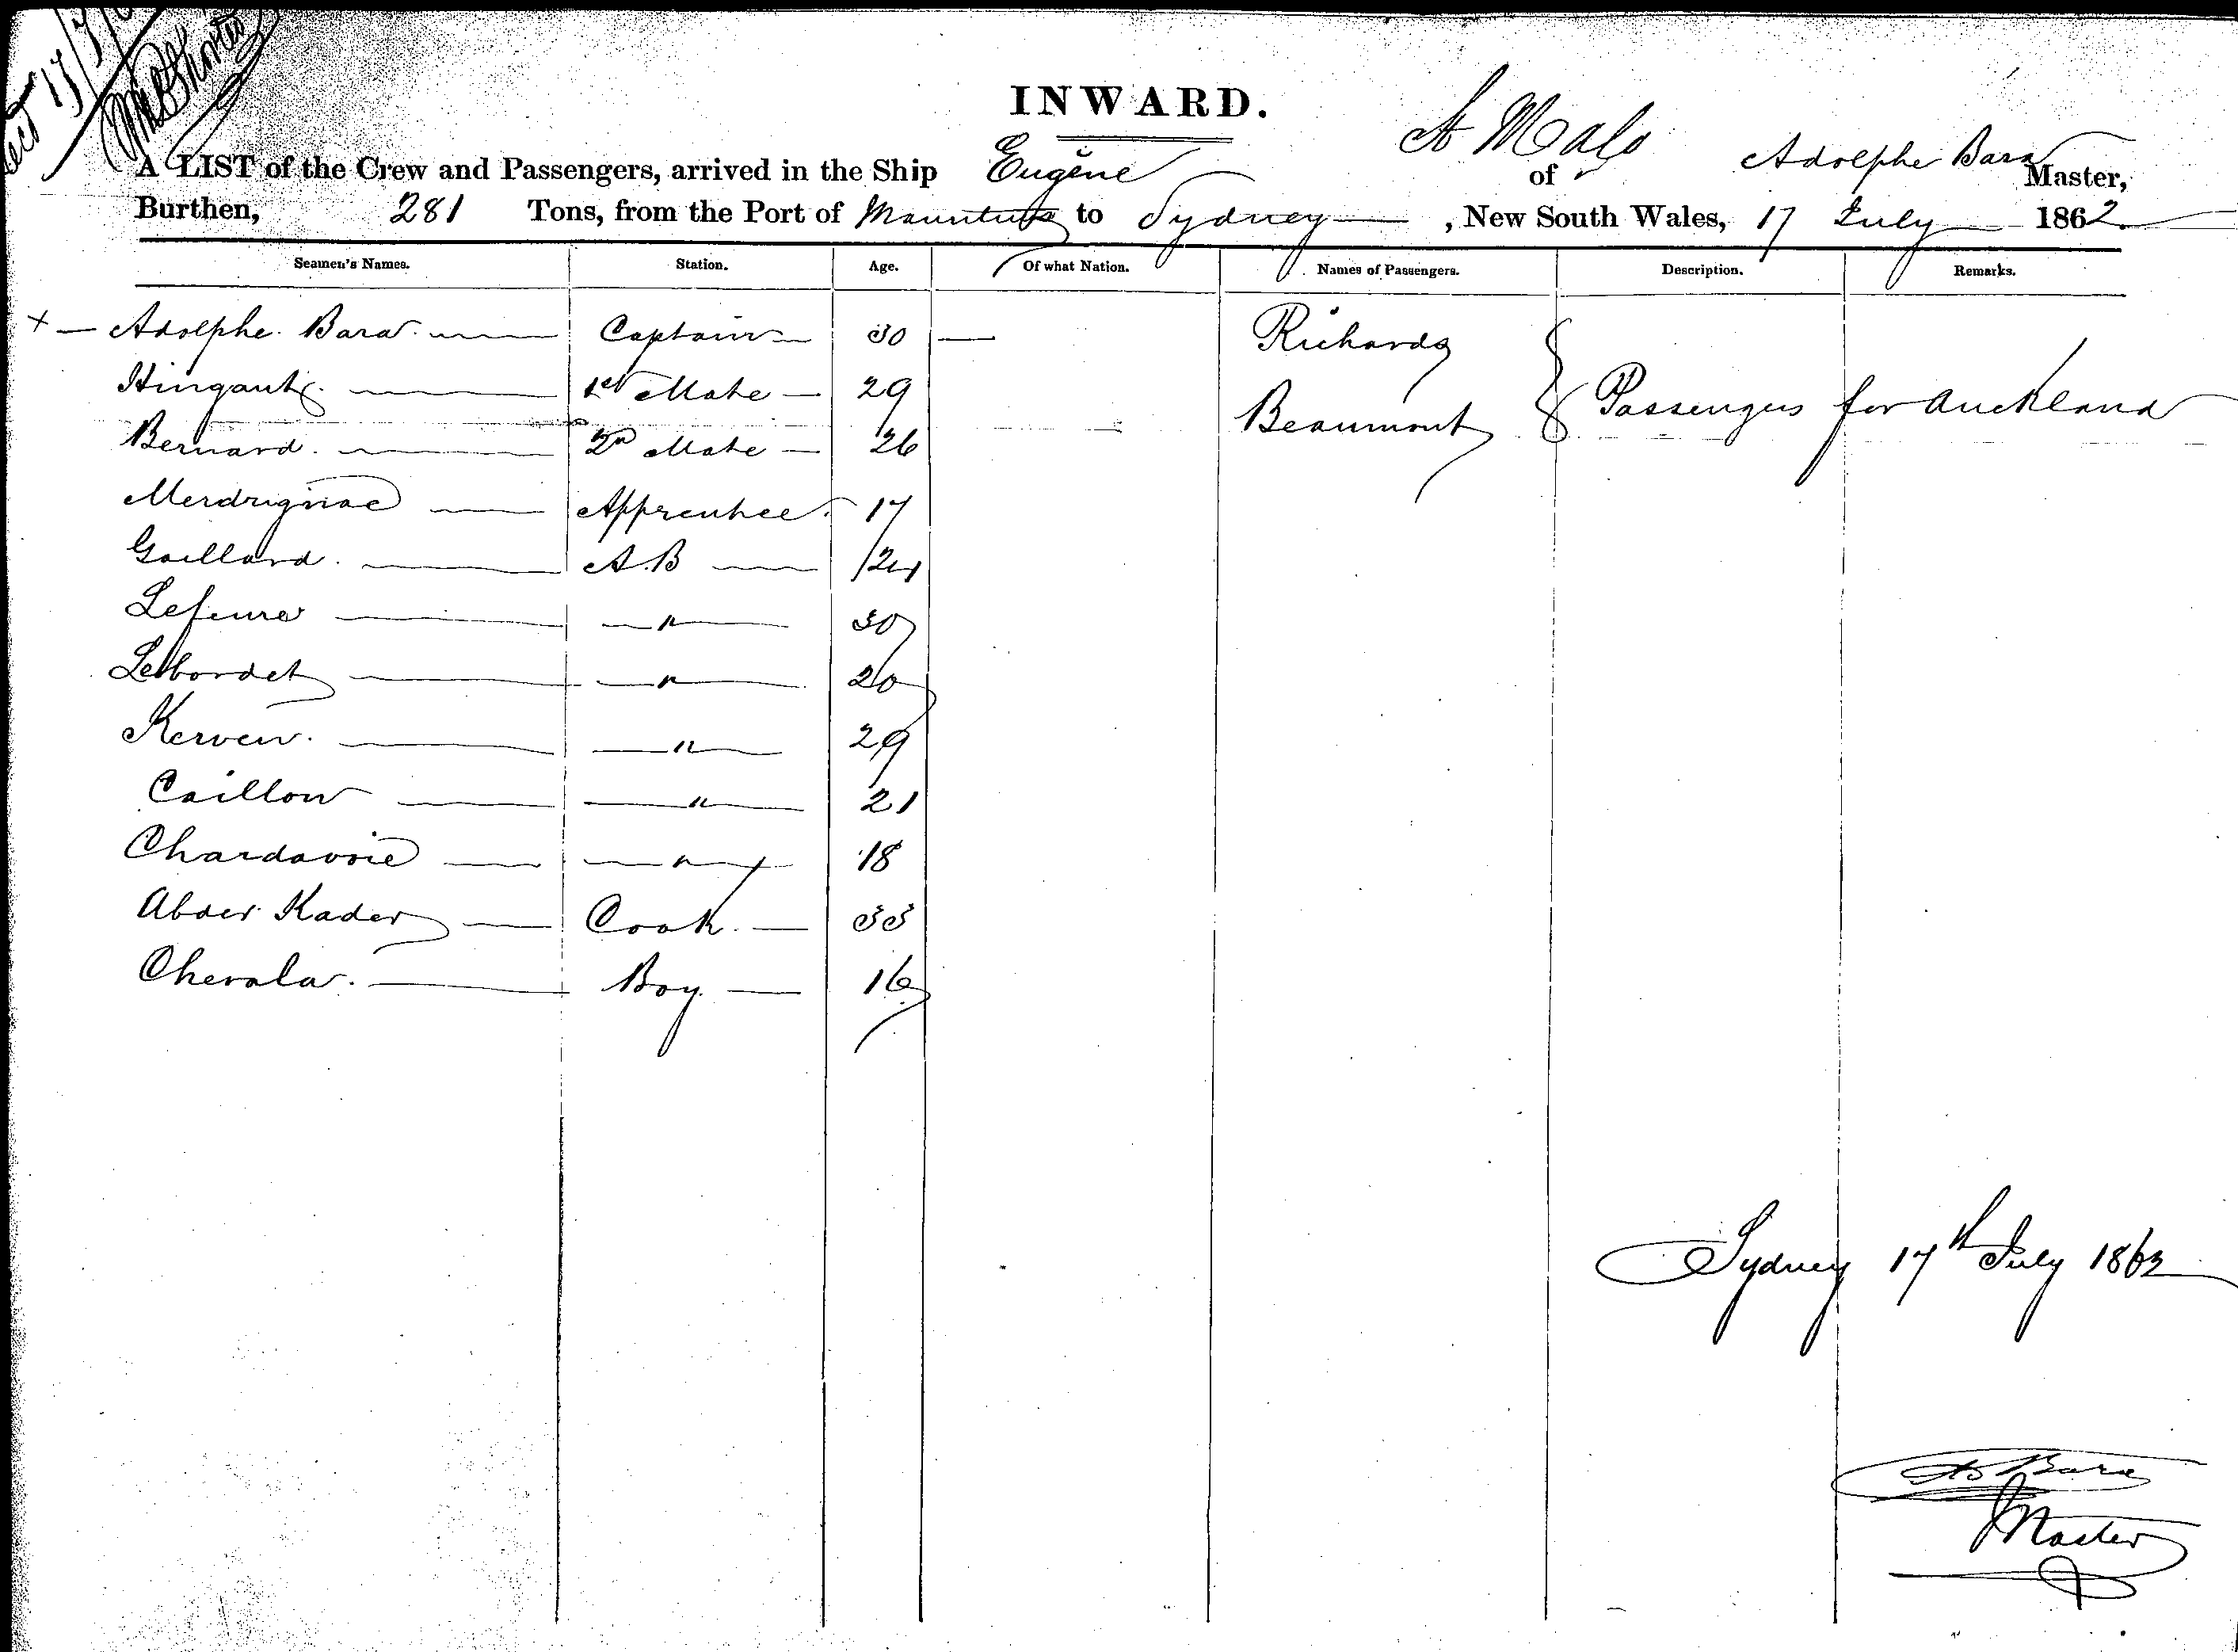 INWARD.
A LIST of the Crew and Passengers, arrived in the Ship Eugène of St Malo Adolphe Bara Master,
Burthen, 281 Tons, from the Port of Mauritius to Sydney , New South Wales, 17 July 1862
Seamen's Names. Station. Age. Of what Nation. Names of Passengers. Description. Remarks.
+ — Adolphe Bara Captain 30 — Richards
Hingant 1st Mate 29 Beaumont } Passengers for Auckland
Bernard 2nd Mate 26
Merdrignac Apprentice 17
Gaillard A.B 24
Lefeuvre " 30
Lebordet " 20
Kerven " 29
Caillou " 21
Chardavoie " 18
Abder Kader Cook 33
Chevala Boy 16
Sydney 17th July 1862
Ad Bara
Master